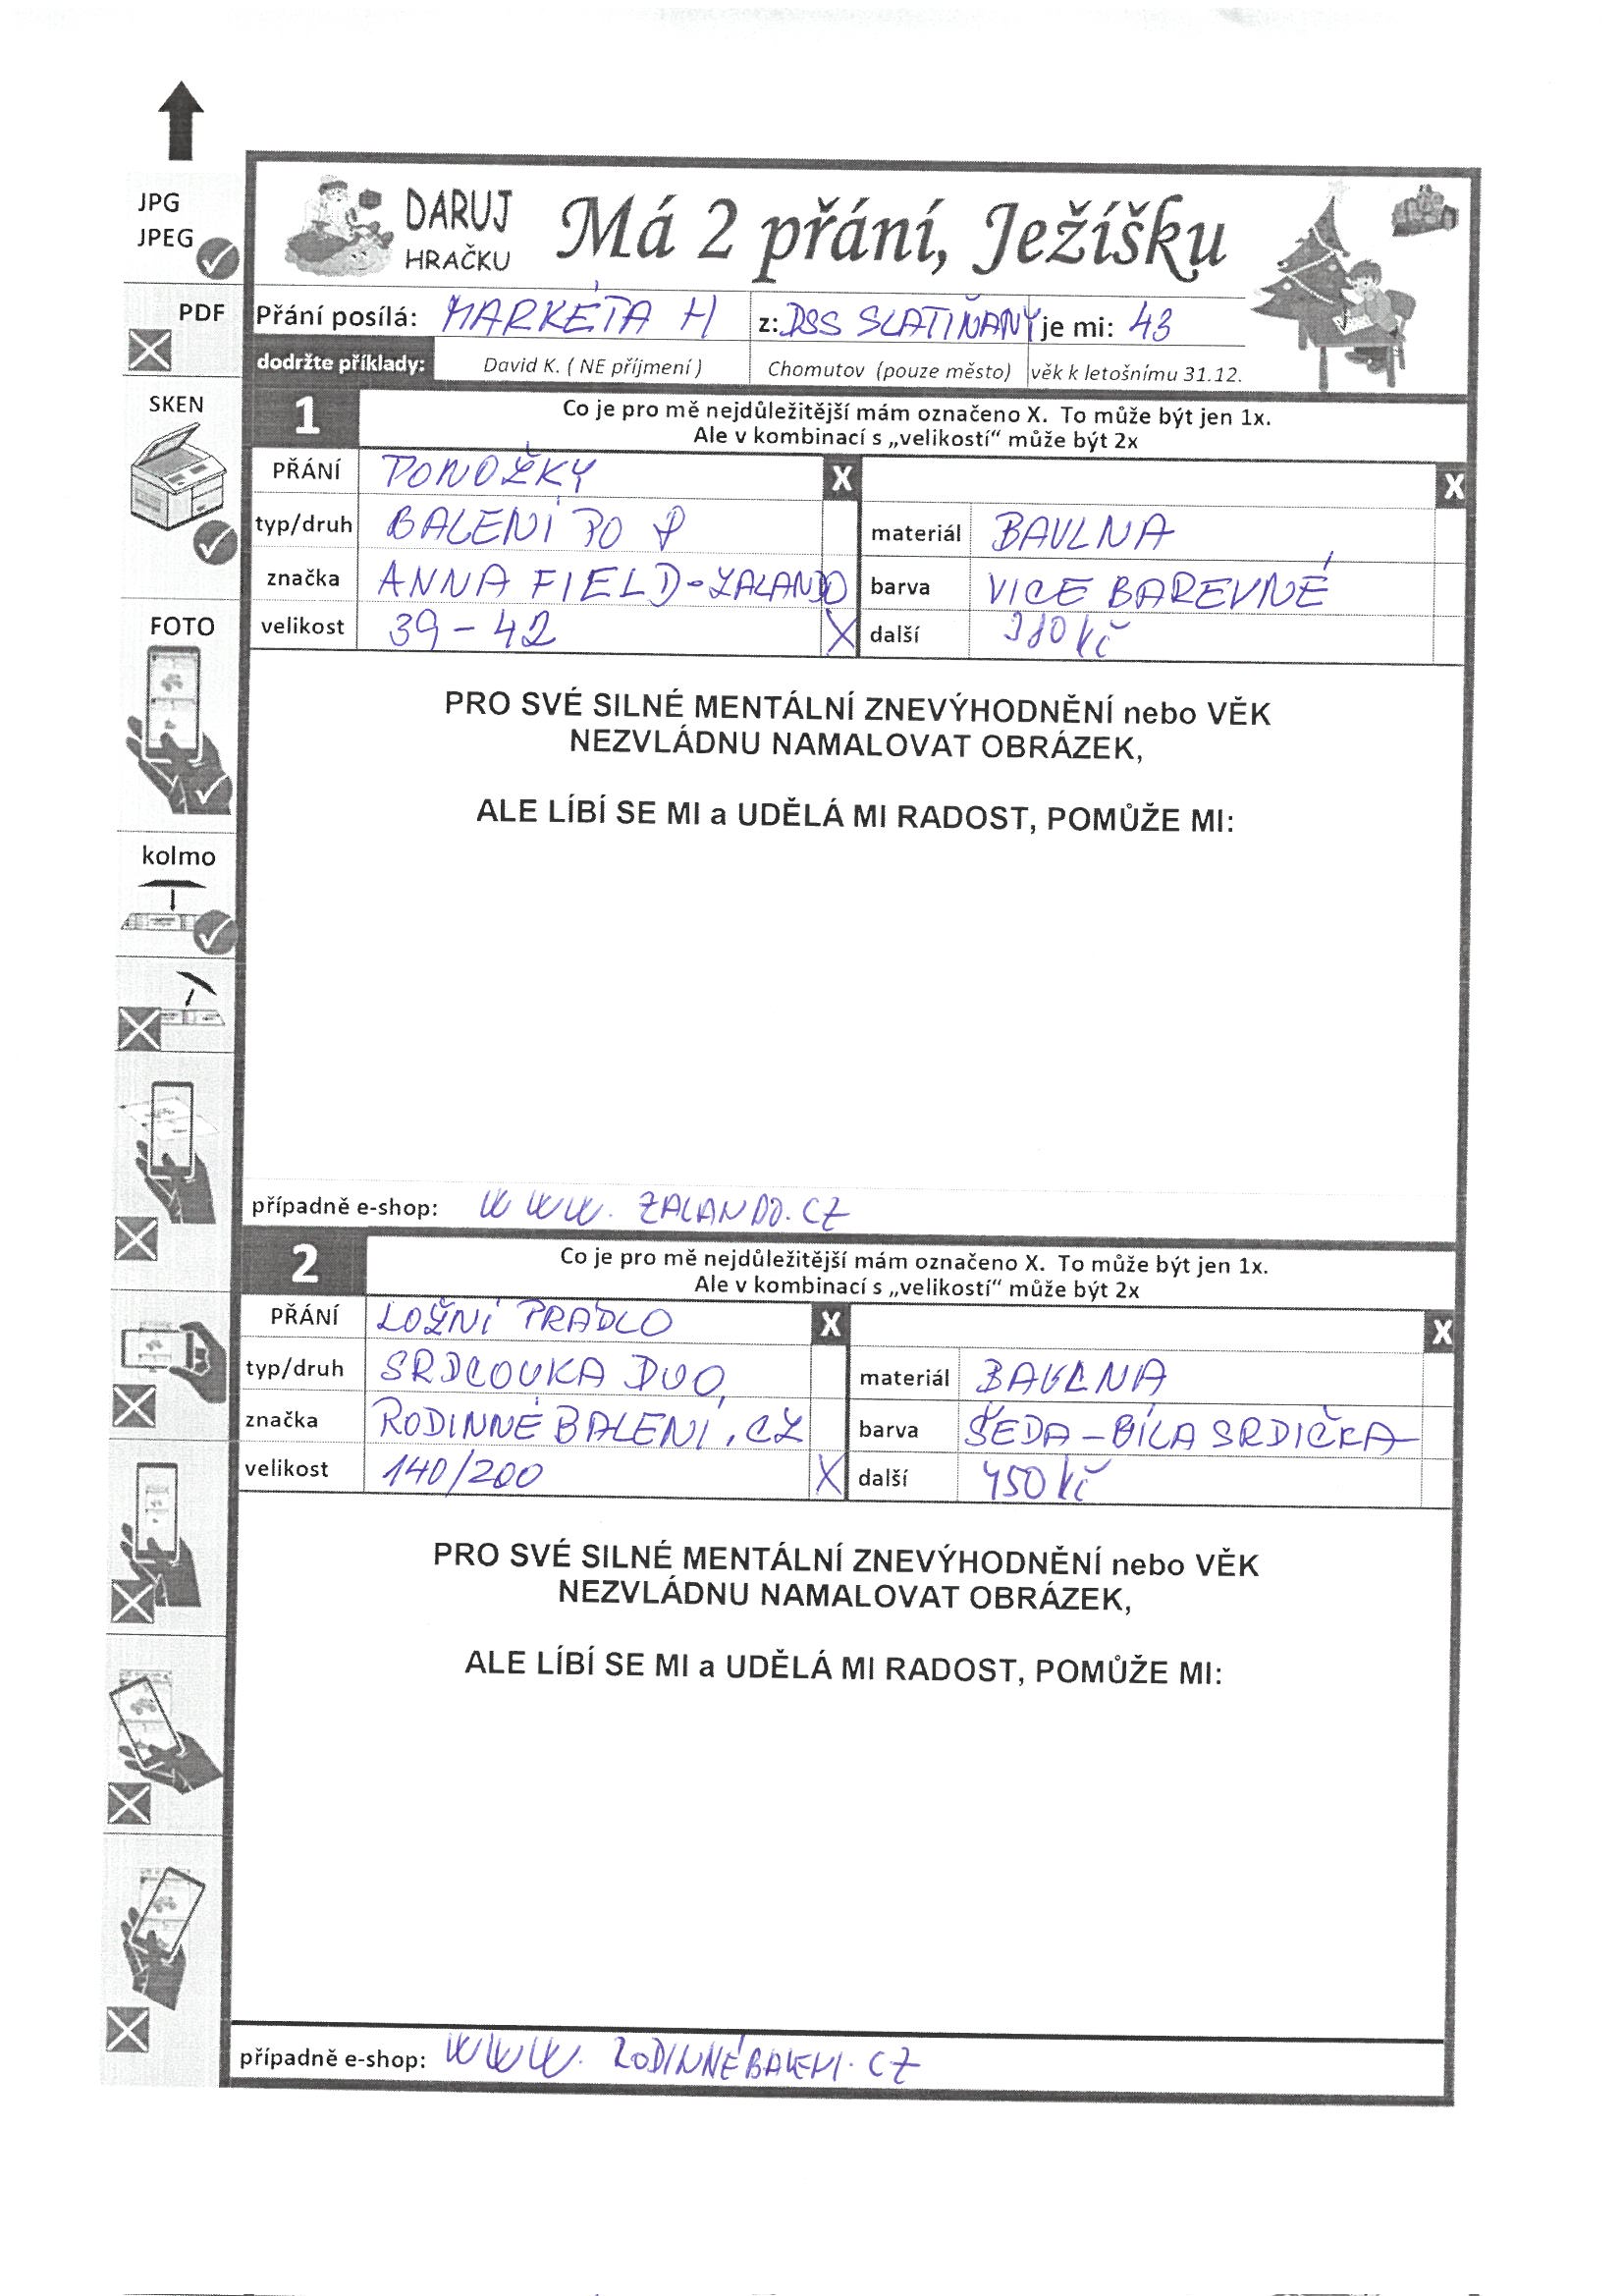 JPG
JPEG
PDF
SKEN
FOTO
kolmo
DARUJ
HRAČKU
Má 2 přání, Ježíšku
Přání posílá: MARKÉTA H z: DSS SLATIŇANY je mi: 43
dodržte příklady: David K. ( NE příjmení ) Chomutov (pouze město) věk k letošnímu 31.12.
1 Co je pro mě nejdůležitější mám označeno X. To může být jen 1x.
Ale v kombinací s „velikostí“ může být 2x
PŘÁNÍ PONOŽKY X X
typ/druh BALENÍ PO materiál BAVLNA
značka ANNA FIELD-ZALANDO barva VICE BAREVNÉ
velikost 39-42 X další Kč
PRO SVÉ SILNÉ MENTÁLNÍ ZNEVÝHODNĚNÍ nebo VĚK
NEZVLÁDNU NAMALOVAT OBRÁZEK,
ALE LÍBÍ SE MI a UDĚLÁ MI RADOST, POMŮŽE MI:
případně e-shop: WWW. ZALANDO.CZ
2 Co je pro mě nejdůležitější mám označeno X. To může být jen 1x.
Ale v kombinací s „velikostí“ může být 2x
PŘÁNÍ LOŽNÍ PRÁDLO X X
typ/druh SRDCOVKA DUO, materiál BAVLNA
značka RODINNÉ BALENÍ.CZ barva ŠEDÁ-BÍLÁ SRDIČKA
velikost 140/200 X další 450 Kč
PRO SVÉ SILNÉ MENTÁLNÍ ZNEVÝHODNĚNÍ nebo VĚK
NEZVLÁDNU NAMALOVAT OBRÁZEK,
ALE LÍBÍ SE MI a UDĚLÁ MI RADOST, POMŮŽE MI:
případně e-shop: WWW. RODINNÉBALENI.CZ